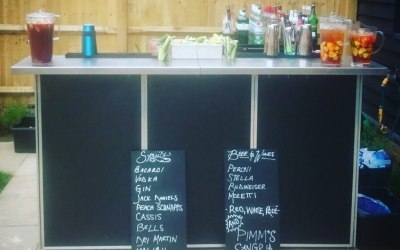 Spirits
BACARDI
VODKA
GIN
JACK DANIELS
PEACH SCHNAPPS
CASSIS
BELLS
DRY MARTINI
MALIBU
BEER & WINES
PERONI
STELLA
BUDWEISER
MORETTI
RED, WHITE, ROSÉ
AND
PIMM'S
SANGRIA